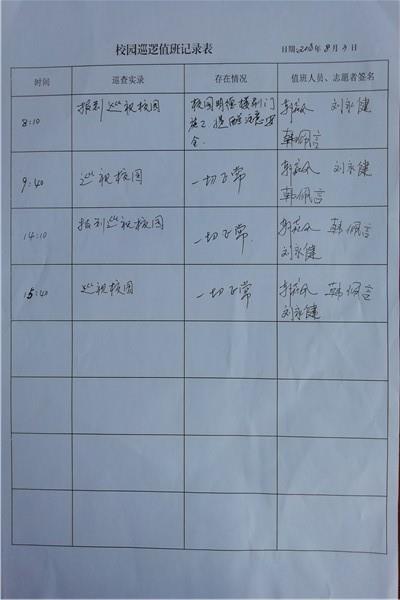 校园巡逻值班记录表
日期: 2018年8月9日
时间 巡查实录 存在情况 值班人员、志愿者签名
8:10 报到巡视校园 校园明德楼前门施工,提醒注意安全. 刘永健 韩佩言
9:40 巡视校园 一切正常 刘永健 韩佩言
14:10 报到巡视校园 一切正常. 韩佩言 刘永健
15:40 巡视校园 一切正常 韩佩言 刘永健